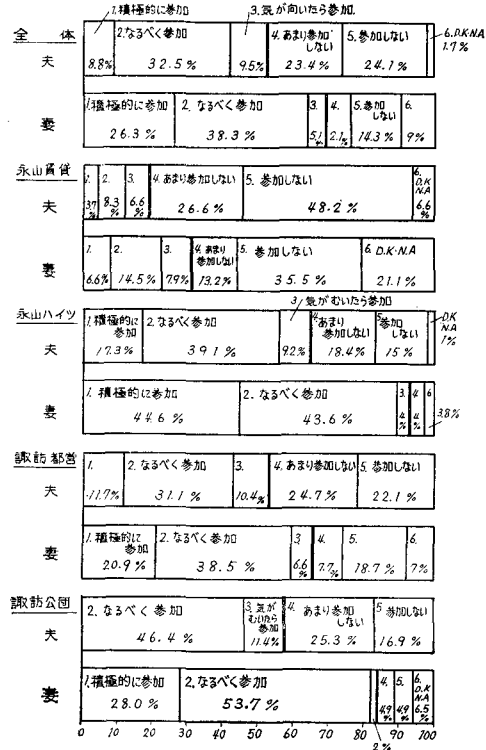 全 体
夫
1.積極的に参加
8.8%
2.なるべく参加
32.5%
3.気が向いたら参加.
9.5%
4.あまり参加
しない
23.4%
5.参加しない
24.1%
6.D.K.NA
1.7%
妻
1.積極的に参加
26.3%
2. なるべく参加
38.3%
3.
5.1
%
4.
2.1%
5.参加
しない
14.3%
6.
9%
永山賃貸
夫
1.
3.7
%
2.
8.3
%
3.
6.6
%
4.あまり参加しない
26.6%
5. 参加しない
48.2%
6.
D.K
NA
6.6
%
妻
1.
6.6%
2.
14.5%
3.
7.9%
4.あまり
参加しない
13.2%
5. 参加しない
35.5%
6. D.K・N.A
21.1%
永山ハイツ
夫
1.積極的に
参加
17.3%
2.なるべく参加
39.1%
3.気がむいたら参加
9.2%
4.
あまり
参加しない
18.4%
5.参加
しない
15%
D.K
NA
1%
妻
1. 積極的に参加
44.6%
2. なるべく参加
43.6%
3.
4
%
4.
4
%
6
3.8%
諏訪都営
夫
1.
11.7%
2. なるべく参加
31.1%
3.
10.4%
4.あまり参加しない
24.7%
5. 参加しない
22.1%
妻
1.積極的に
参加
20.9%
2. なるべく参加
38.5%
3.
6.6
%
4.
7.7
%
5.
18.7%
6.
7%
諏訪公団
夫
2. なるべく参加
46.4%
3.気が
むいたら
参加
11.4%
4.
あまり参加
しない
25.3%
5 参加しない
16.9%
妻
1.積極的に参加
28.0%
2.なるべく参加
53.7%
2%
4.
4.9
%
5.
4.9
%
6.
D.K
NA
6.5
%
0 10 20 30 40 50 60 70 80 90 100